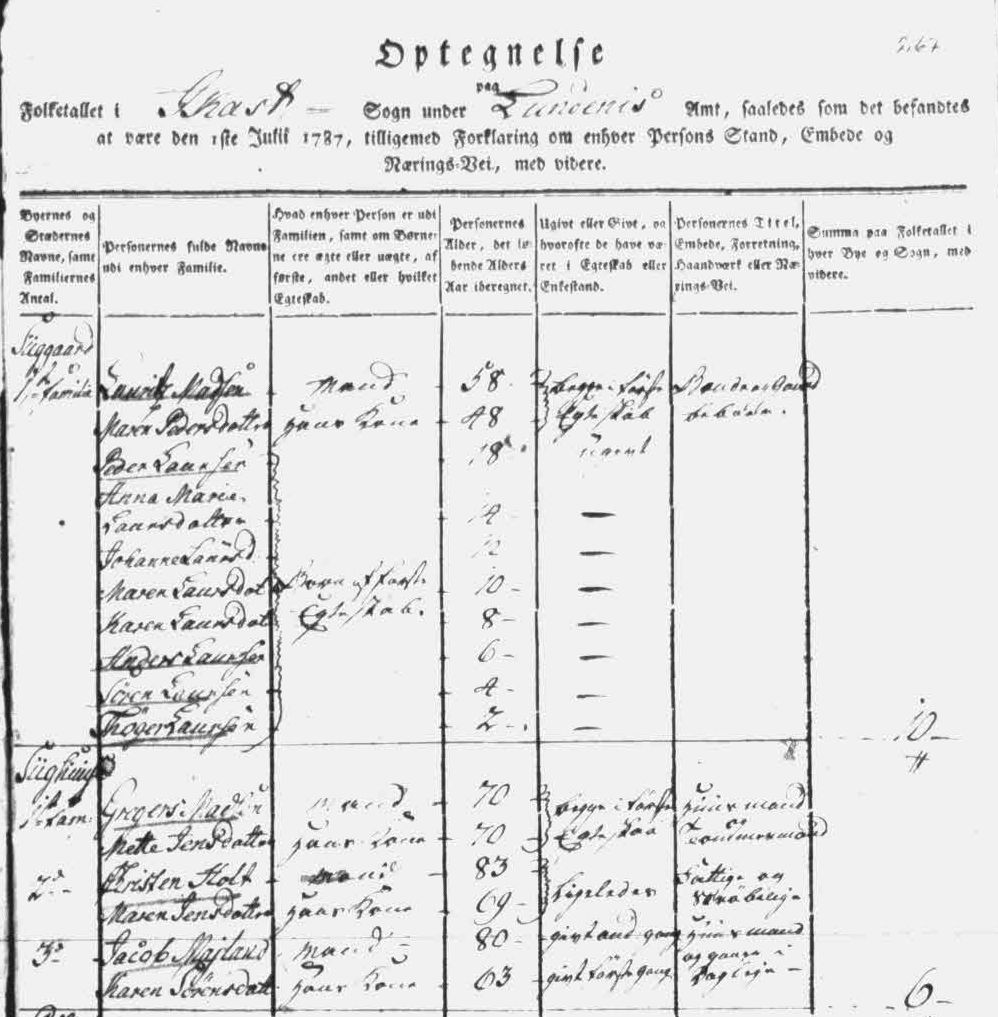 267
Optegnelse
paa
Folketallet i Skast Sogn under Lundenis Amt, saaledes som det befandtes
at være den 1ste Julii 1787, tilligemed Forklaring om enhver Persons Stand, Embede og
Nærings-Vei, med videre.
Byernes og Stædernes Navne, samt Familiernes Antal.
Personernes fulde Navne udi enhver Familie.
Hvad enhver Person er udi Familien, samt om Børnene ere ægte eller uægte, af første, andet eller hvilket Egteskab.
Personernes Alder, det løbende Alders Aar iberegnet.
Ugivt eller Givt, og hvorofte de have været i Egteskab eller Enkestand.
Personernes Titel, Embede, Forretning, Haandværk eller Nærings-Vei.
Summa paa Folketallet i hver Bye og Sogn, med videre.
Siiggaard
1ste familie Lauritz Madsen mand 58 begge i første Bonde og Gaard
Maren Pedersdatter Hans Kone 48 Egteskab beboer.
Peder Laursen 18 ugivt
Anna Marie
Laursdatter 14 —
Johanne Laursd. 12 —
Maren Laursdat Børn af første 10 —
Karen Laursdat Egteskab. 8 —
Anders Laursen 6 —
Sören Laursen 4 —
Thöger Laursen 2 — 10
Siighuus
1ste Fam: Gregers Madsen mand 70 begge i første Huusmand og
Mette Jensdatter Hans Kone 70 Egteskab Tømmermand
2den Christen Holt mand 83 ligeledes Fattige og
Maren Jensdatter Hans Kone 69 skrøbelige
3die Jacob Majland mand 80 givt and gang Huusmand
Karen Sörensdatt Hans Kone 63 givt første gang og gaaer i Dagleje 6